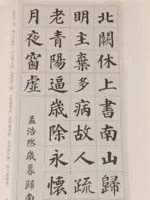 北闕休上書南山歸
明主棄多病故人疏
老青陽逼歲除永懷
月夜窗虛
孟浩然歲暮歸南